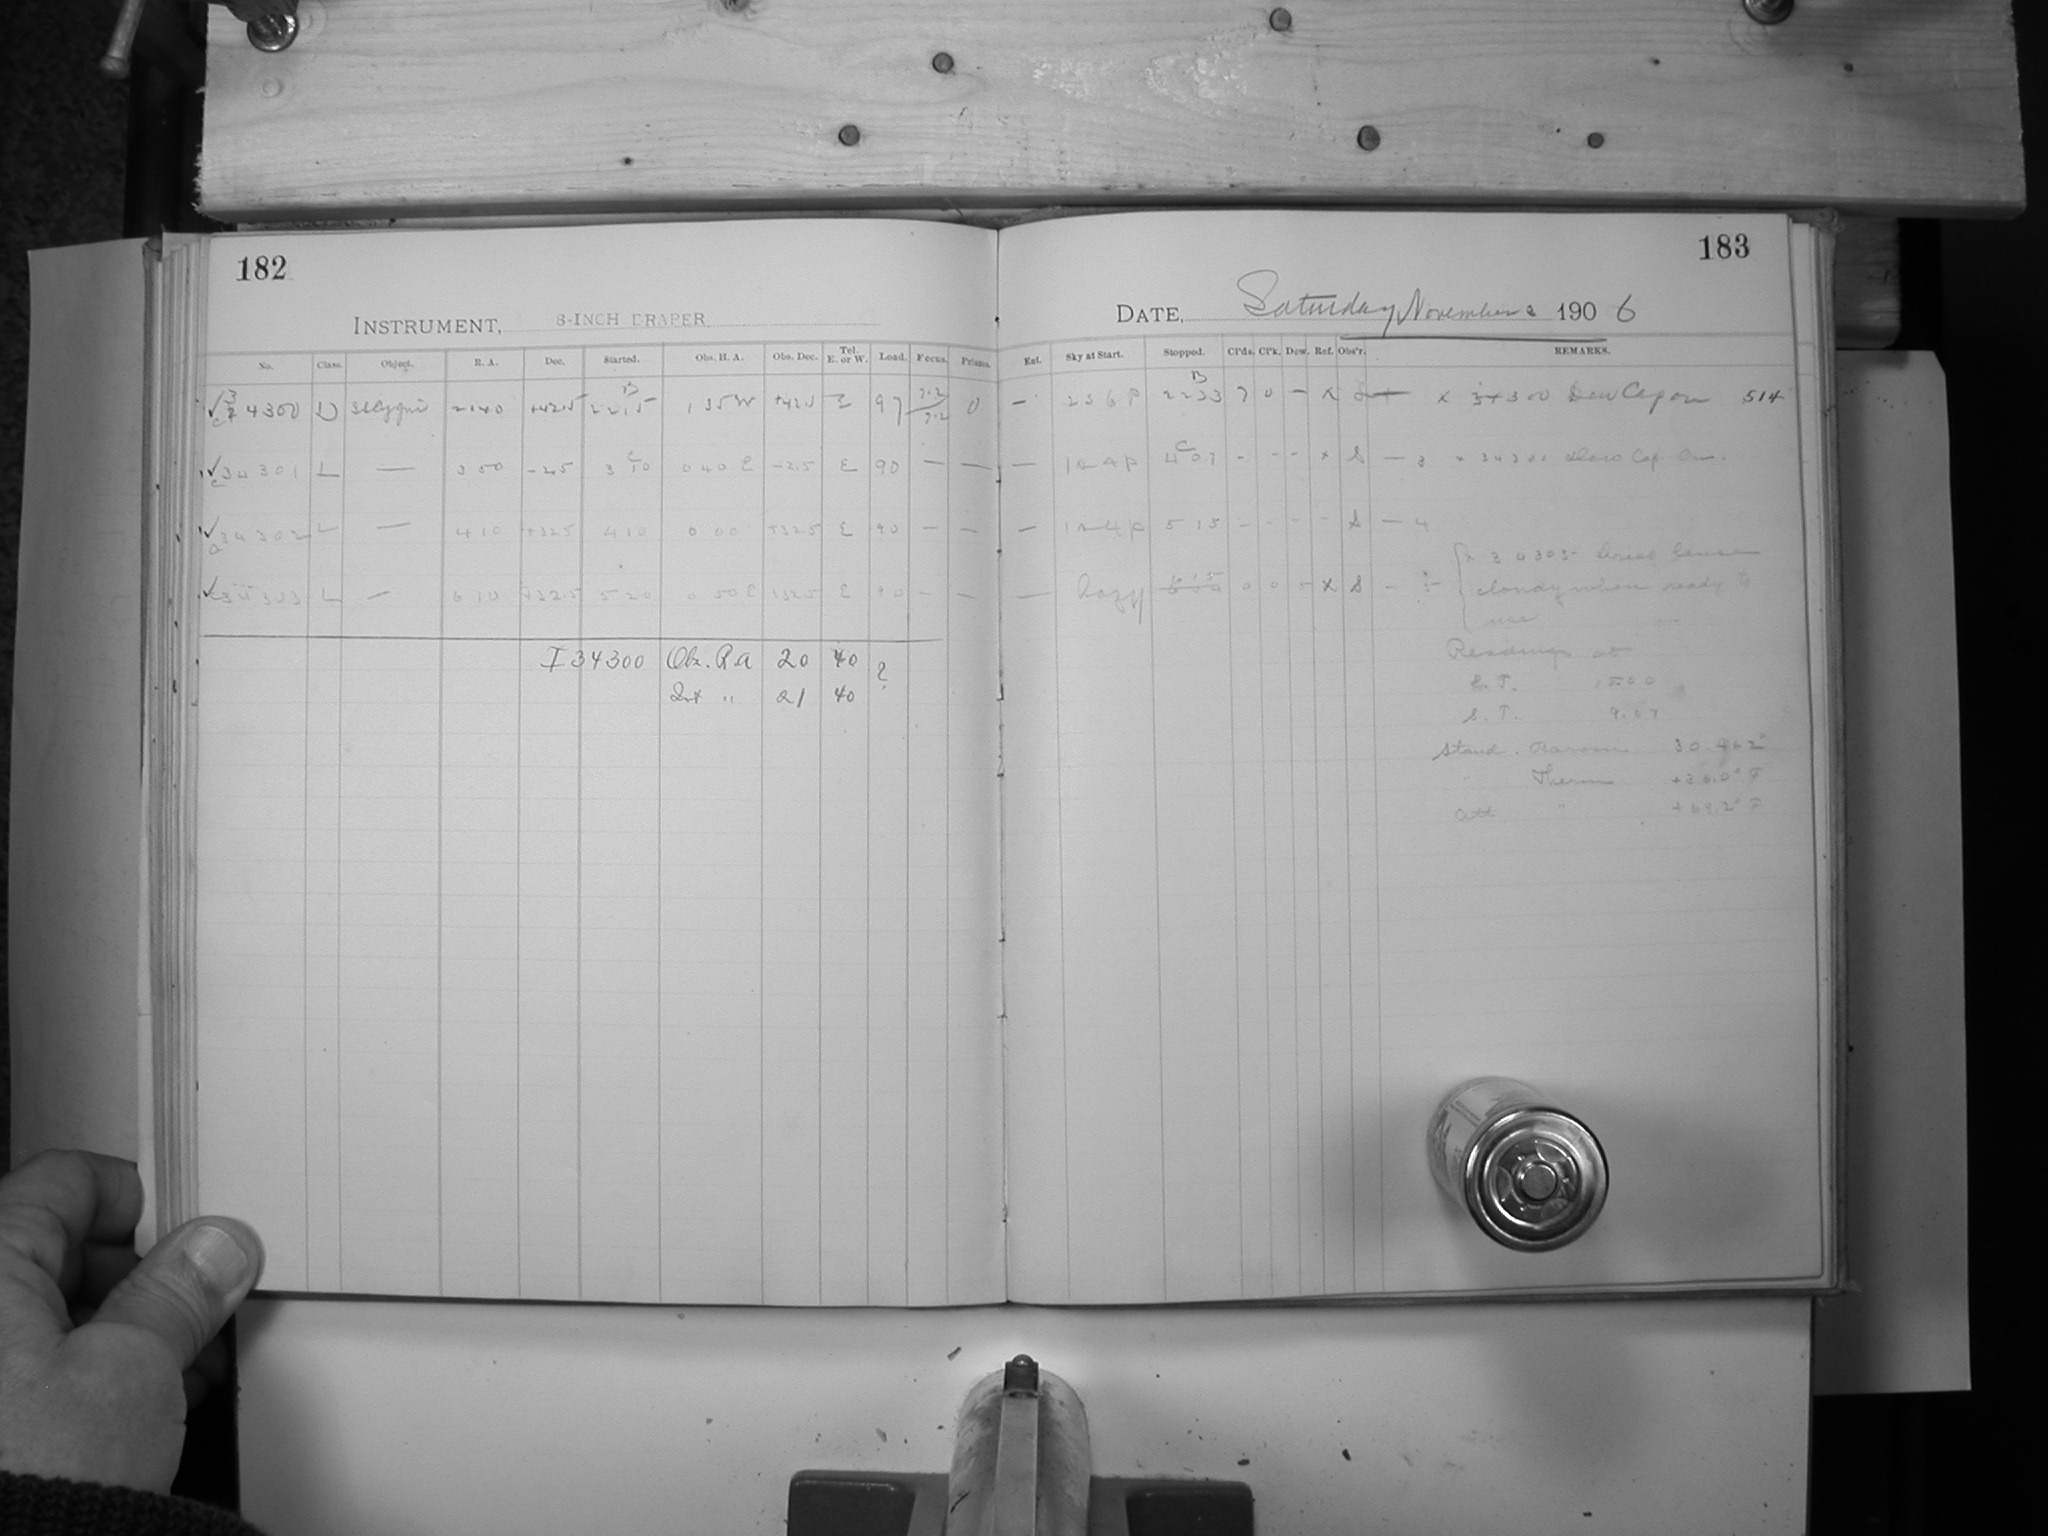 182
183
INSTRUMENT, 8-INCH DRAPER
DATE, Saturday November 3 1906
No. Class. Object. R. A. Dec. Started. Obs. H. A. Obs. Dec. Tel. E. or W. Load. Focus. Prisms.
Ext. Sky at Start. Stopped. Cl'ds. Cl'k. Dew. Ref. Obs'r. REMARKS.
34300 SS Cygni 2140 +42.5 22 15 1 35 W +42.5 E 97 0 – 22 33 7 0 – x x 34300 Dew Cap on 514
34301 L — 3 50 -2.5 3 10 0 40 E -2.5 E 90 — — — 4 07 - - - x S – 3 x 34301 Dew Cap On.
34302 L — 4 10 +32.5 4 10 0 00 +32.5 E 90 – – – 5 15 - - - - S – 4
34303 L — 6 10 +32.5 5 20 0 50 E +32.5 E 90 – – — hazy 0 0 x S – 5
cloudy when ready to
use
I 34300 Obs. R.A 20 40 ?
21 40
Readings at
S. T. 9.07
Stand. Barom 30.462
" Therm +36.0° F
Att " +69.2° F